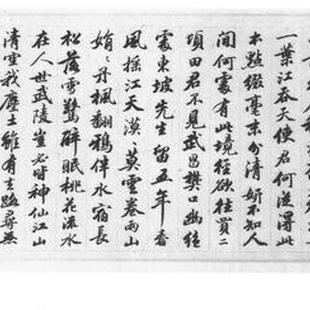 一葉江吞天使君何從得此
本點綴毫末分清妍不知人
間何處有此境徑欲往買二
頃田君不見武昌樊口幽絕
處東坡先生留五年春
風搖江天漠〻莫雲卷雨山
娟〻丹楓翻鴉伴水宿長
松落雪驚醉眠桃花流水
在人世武陵豈必皆神仙江山
清空我塵土雖有去路尋無